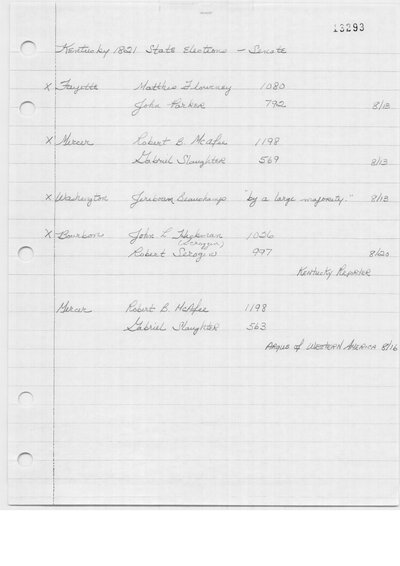 13293
Kentucky 1821 State Elections - Senate
X Fayette Matthis Flournoy 1080
John Parker 792 8/13
X Mercer Robert B. McAfee 1198
Gabriel Slaughter 569 8/13
X Washington Jeriboam Beauchamp "by a large majority." 8/13
X Bourbon John L. Hickman 1026
(Scroggin)
Robert Scrogin 997 8/20
Kentucky Reporter
Mercer Robert B. McAfee 1198
Gabriel Slaughter 563
Argus of Western America 8/16